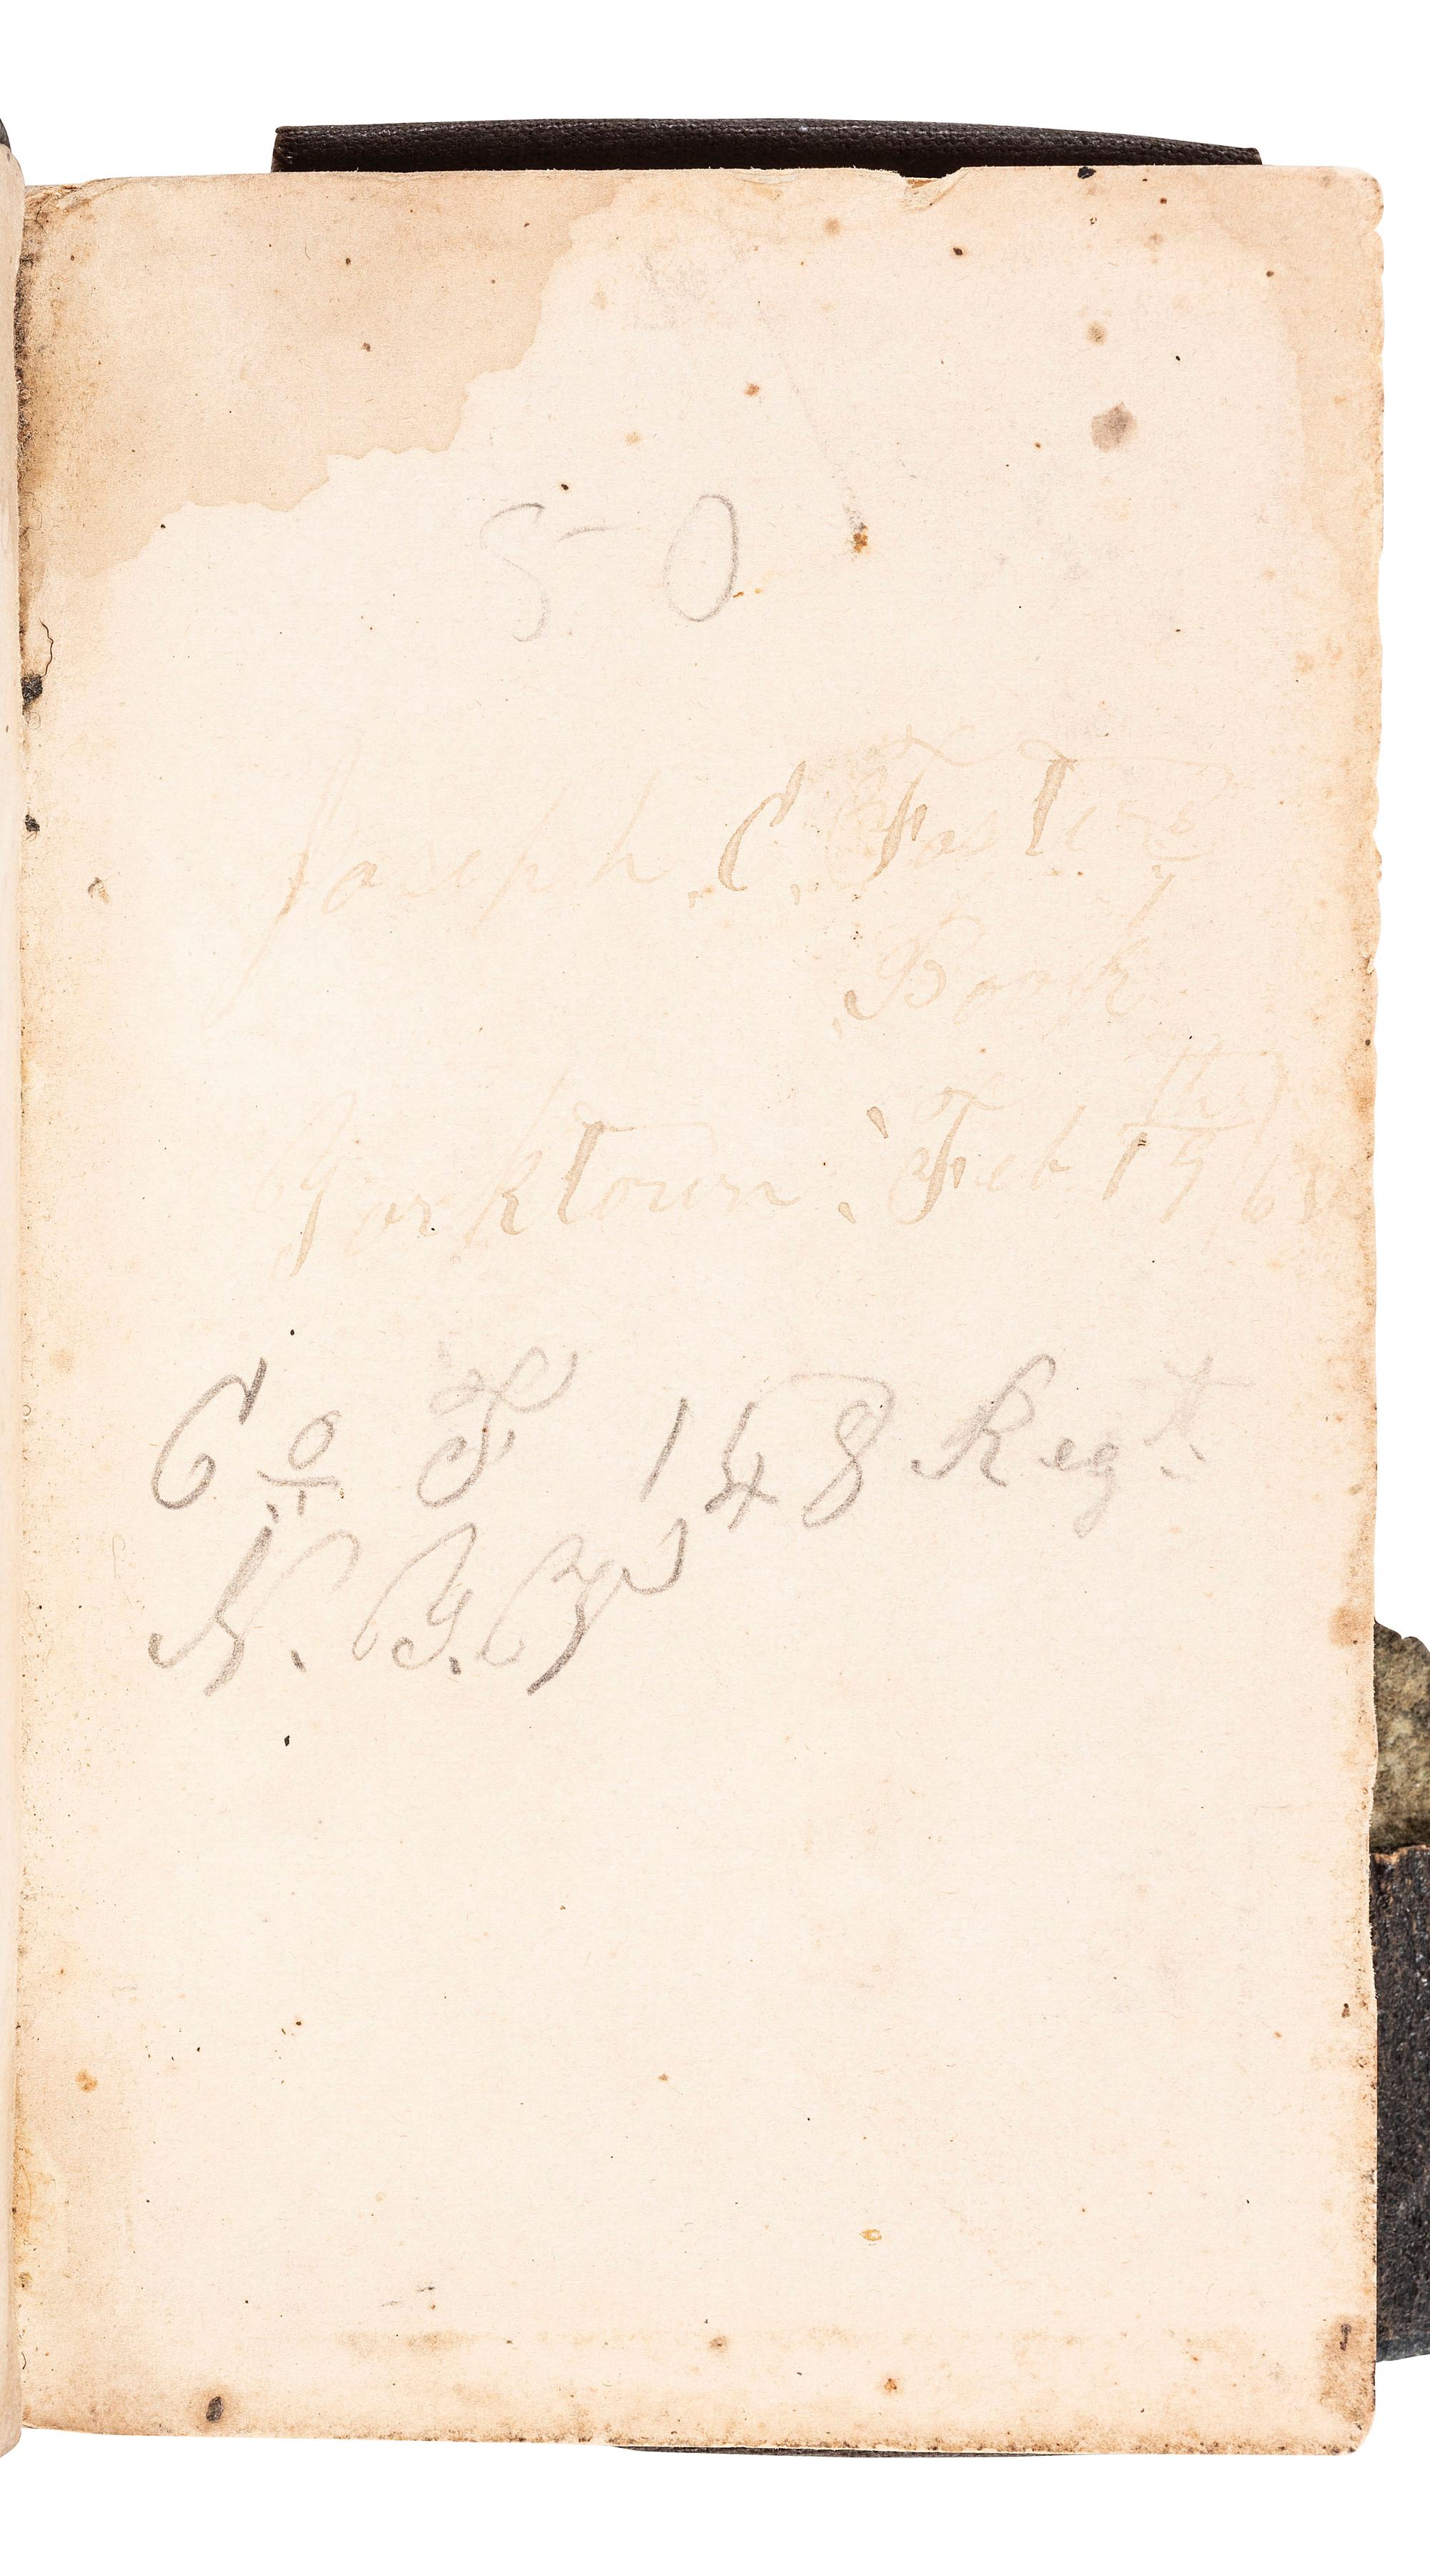 50
Joseph C. Foster's
Book
Yorktown, Feb
Co F 148 Regt.
N.Y.V